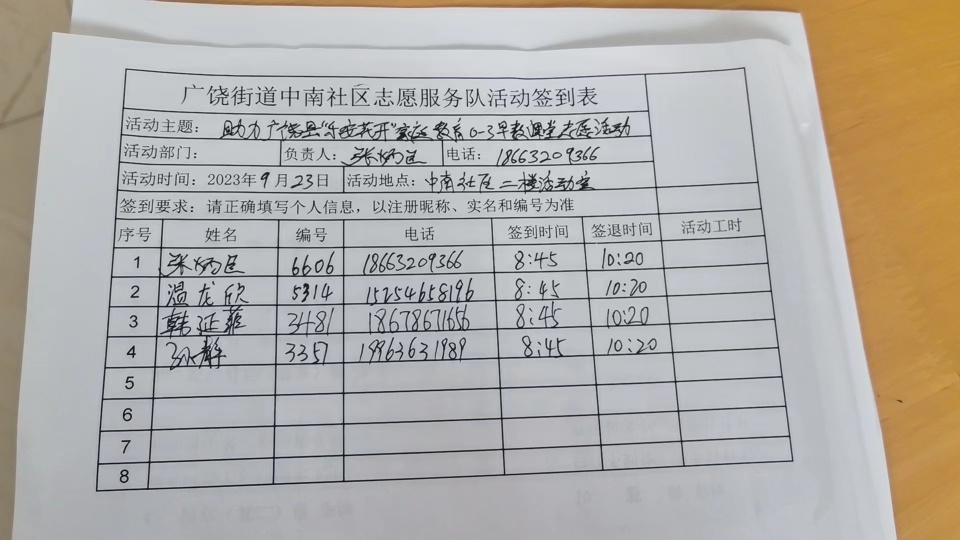 广饶街道中南社区志愿服务队活动签到表
活动主题: 助力广饶县"乐安花开"家庭教育0-3早教课堂志愿活动
活动部门: 负责人: 张炳臣 电话: 18663209366
活动时间: 2023年9月23日 活动地点: 中南社区二楼活动室
签到要求: 请正确填写个人信息, 以注册昵称、实名和编号为准
序号 姓名 编号 电话 签到时间 签退时间 活动工时
1 张炳臣 6606 18663209366 8:45 10:20
2 温龙欣 5314 15254658196 8:45 10:20
3 韩延菲 3481 18678671656 8:45 10:20
4 孙静 3357 19963631989 8:45 10:20
5
6
7
8